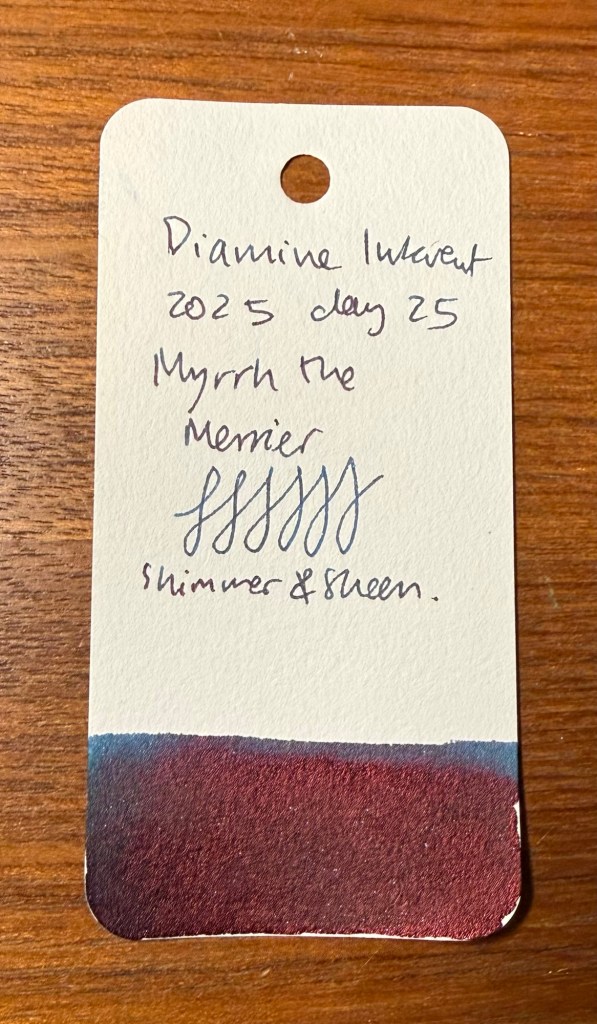 Diamine Inkvent
2025 day 25
Myrrh the
Merrier
Shimmer & Sheen.